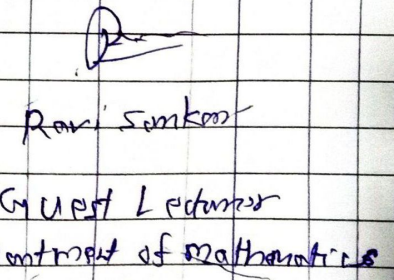 Ravi Sankar
Guest Lecturer
artment of mathematics